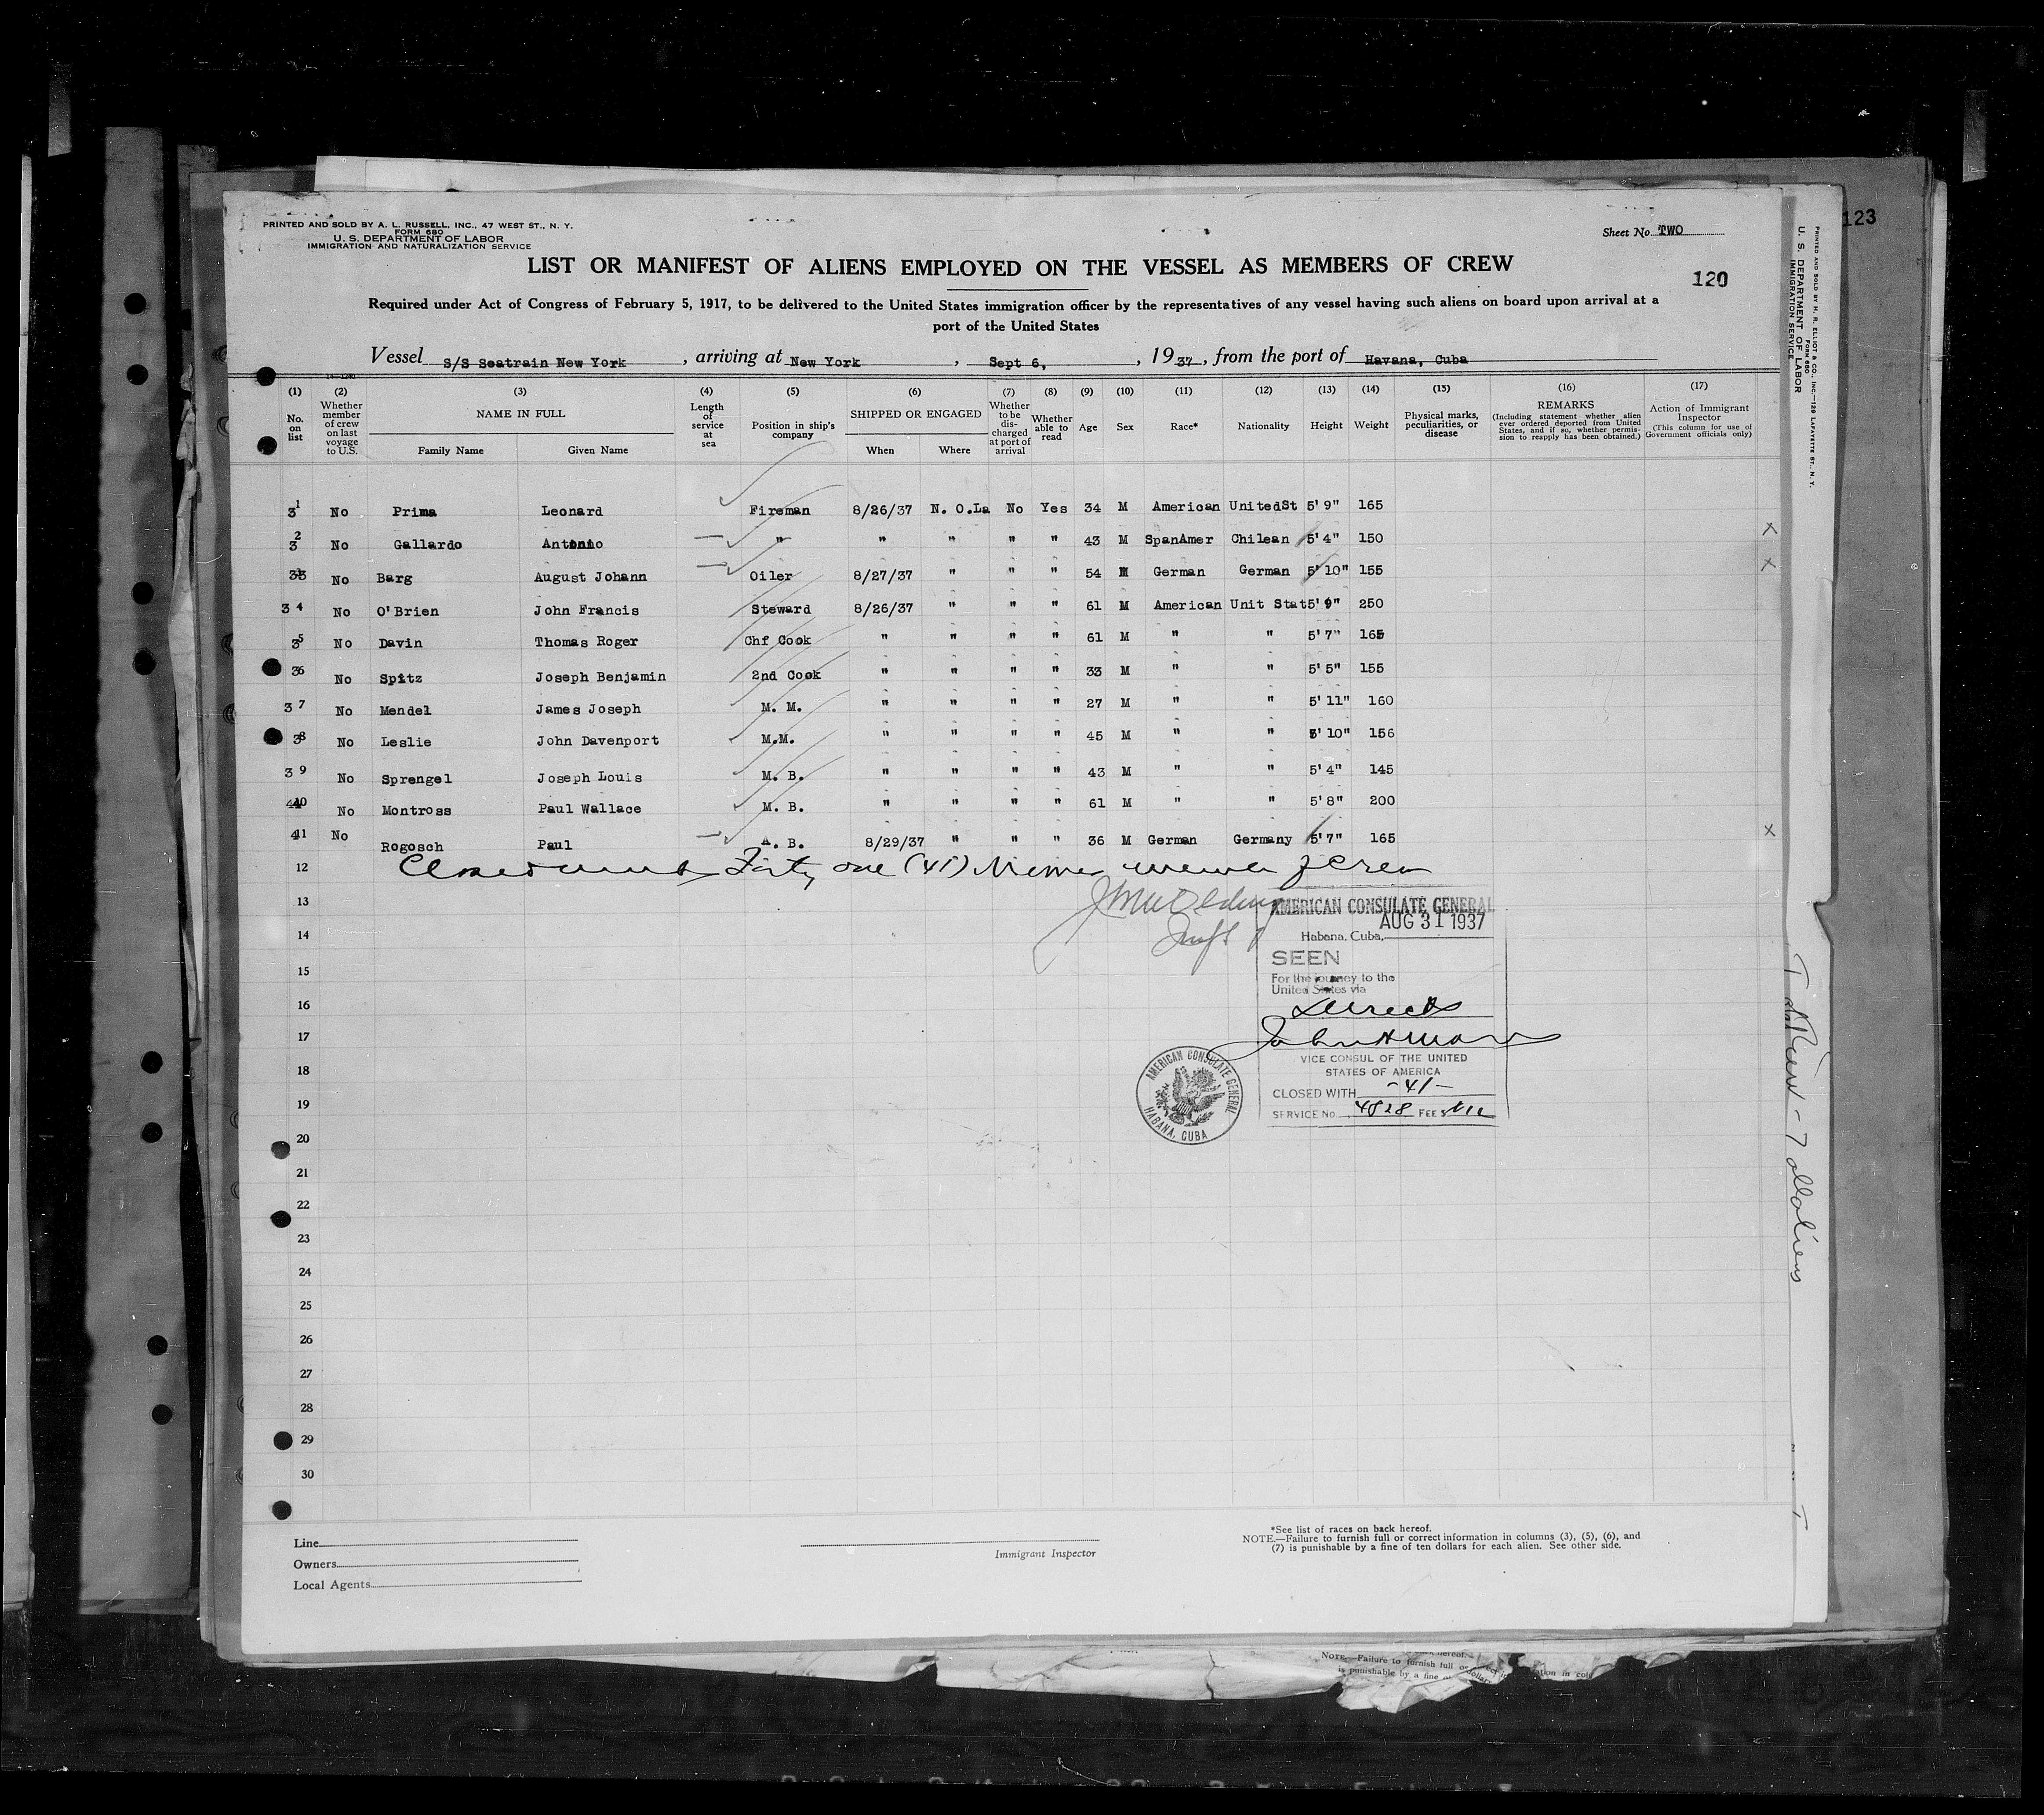 PRINTED AND SOLD BY A. L. RUSSELL, INC., 47 WEST ST., N. Y.
FORM 680
U. S. DEPARTMENT OF LABOR
IMMIGRATION AND NATURALIZATION SERVICE
Sheet No. TWO
123
120
LIST OR MANIFEST OF ALIENS EMPLOYED ON THE VESSEL AS MEMBERS OF CREW
Required under Act of Congress of February 5, 1917, to be delivered to the United States immigration officer by the representatives of any vessel having such aliens on board upon arrival at a
port of the United States
Vessel S/S Seatrain New York, arriving at New York, Sept 6, 1937, from the port of Havana, Cuba
(1) (2) (3) (4) (5) (6) (7) (8) (9) (10) (11) (12) (13) (14) (15) (16) (17)
No. on list
Whether member of crew on last voyage to U.S.
NAME IN FULL
Family Name
Given Name
Length of service at sea
Position in ship's company
SHIPPED OR ENGAGED
When
Where
Whether to be discharged at port of arrival
Whether able to read
Age
Sex
Race*
Nationality
Height
Weight
Physical marks, peculiarities, or disease
REMARKS
(Including statement whether alien ever ordered deported from United States, and if so, whether permission to reapply has been obtained.)
Action of Immigrant Inspector
(This column for use of Government officials only)
31 No Prima Leonard Fireman 8/26/37 N. O.La No Yes 34 M American UnitedSt 5'9" 165
32 No Gallardo Antonio " " " " " 43 M SpanAmer Chilean 5'4" 150 X
33 No Barg August Johann Oiler 8/27/37 " " " 54 M German German 5'10" 155 X
34 No O'Brien John Francis Steward 8/26/37 " " " 61 M American Unit Stat 5'9" 250
35 No Davin Thomas Roger Chf Cook " " " " 61 M " " 5'7" 165
36 No Spitz Joseph Benjamin 2nd Cook " " " " 33 M " " 5'5" 155
37 No Mendel James Joseph M. M. " " " " 27 M " " 5'11" 160
38 No Leslie John Davenport M.M. " " " " 45 M " " 5'10" 156
39 No Sprengel Joseph Louis M. B. " " " " 43 M " " 5'4" 145
40 No Montross Paul Wallace M. B. " " " " 61 M " " 5'8" 200
41 No Rogosch Paul A. B. 8/29/37 " " " 36 M German Germany 5'7" 165 X
12 Forty one (41) crew
13
14
15
16
17
18
19
20
21
22
23
24
25
26
27
28
29
30
AMERICAN CONSULATE GENERAL
AUG 31 1937
Habana, Cuba,
SEEN
For the journey to the
United States via
Direct
VICE CONSUL OF THE UNITED
STATES OF AMERICA
CLOSED WITH -41-
SERVICE No. 4828 FEE $ Nil
AMERICAN CONSULATE GENERAL
HABANA, CUBA
Line
Owners
Local Agents
Immigrant Inspector
*See list of races on back hereof.
NOTE.—Failure to furnish full or correct information in columns (3), (5), (6), and
(7) is punishable by a fine of ten dollars for each alien. See other side.
PRINTED AND SOLD BY H. R. ELLIOT & CO., INC.—129 LAFAYETTE ST., N. Y.
FORM 680
U. S. DEPARTMENT OF LABOR
IMMIGRATION SERVICE
hereof.
NOTE.—Failure to furnish full or
is punishable by a fine